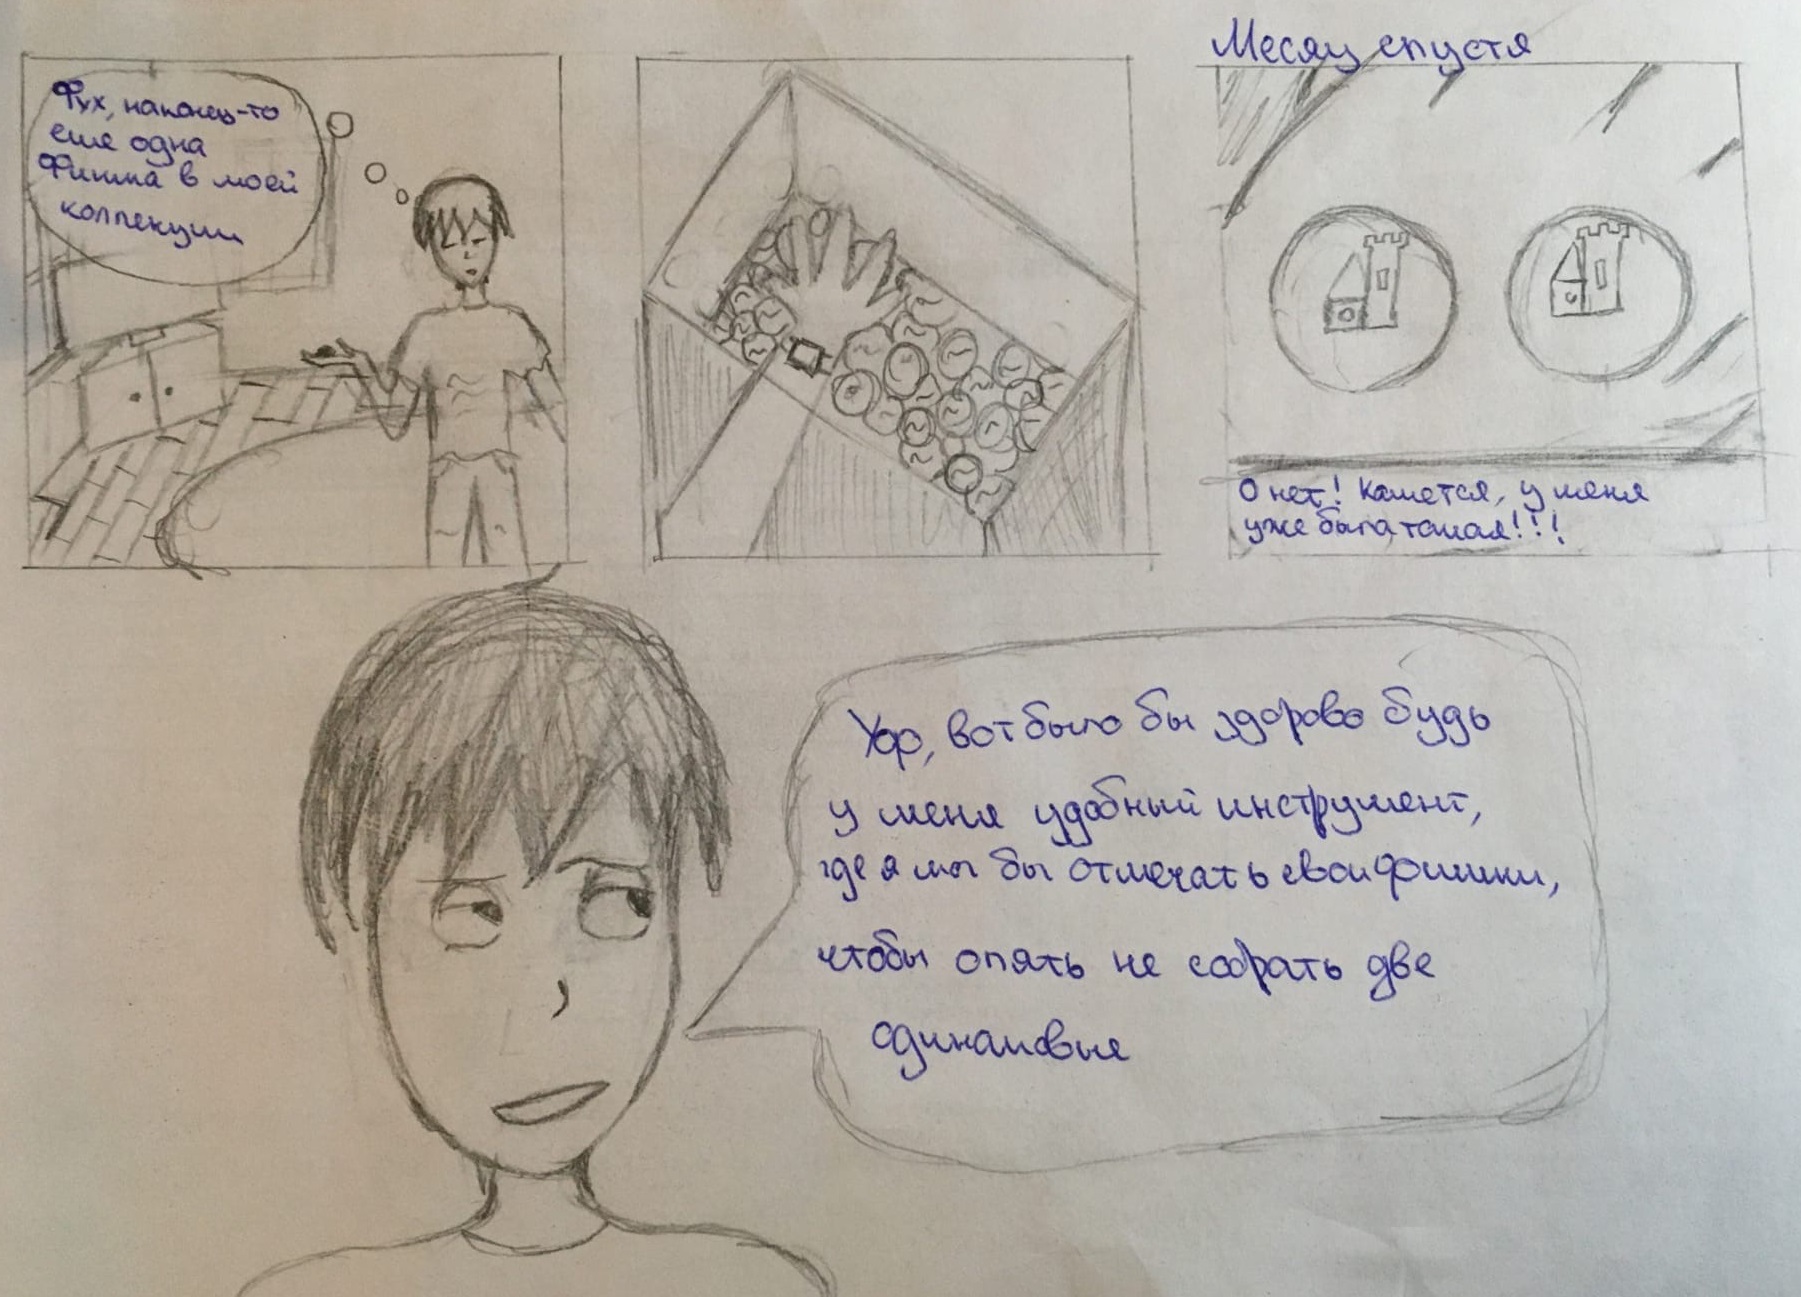 Фух, наконец-то
еще одна
Фишка в моей
коллекции
Месяц спустя
О нет! Кажется, у меня
уже была такая!!!
Уф, вот было бы здорово будь
у меня удобный инструмент,
где я мог бы отмечать свои фишки,
чтобы опять не собрать две
одинаковые